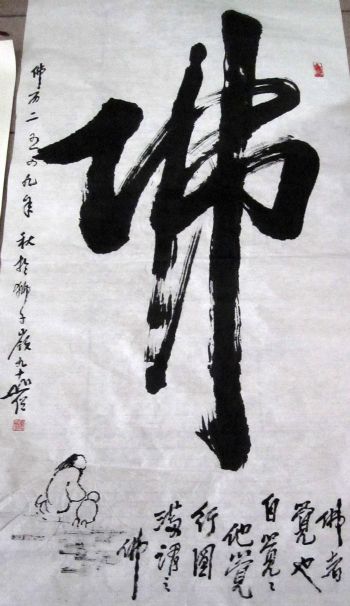 佛
佛历二五四九年 秋於獅子嶺九十
佛者
覺也
自覺〻
他覺
行圓
滿謂之
佛